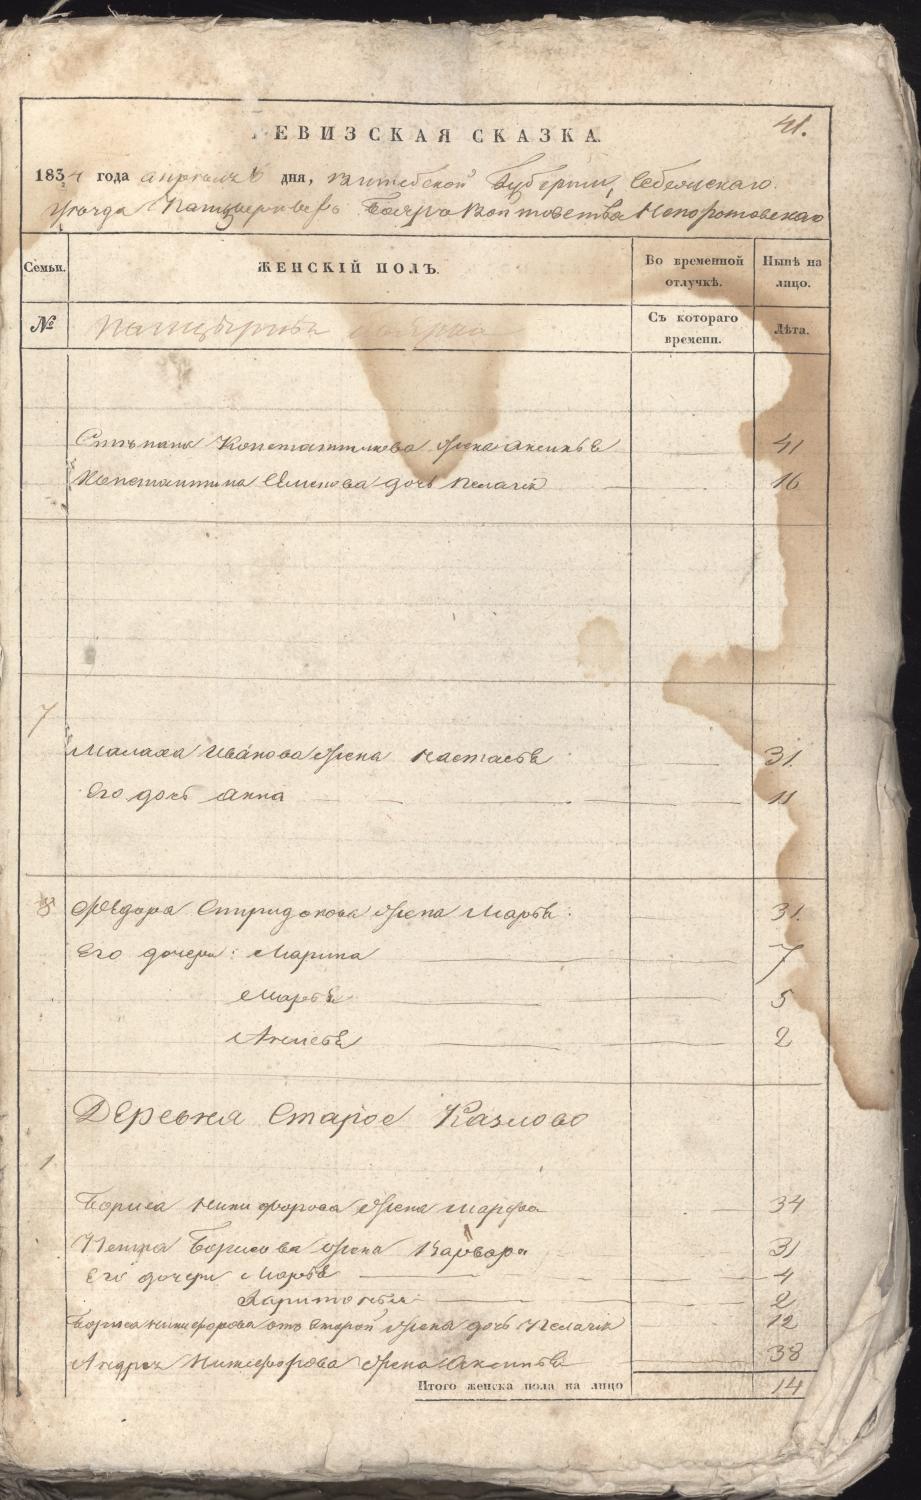 41.
РЕВИЗСКАЯ СКАЗКА.
1834 года апреля дня, Витебской Губернии, Себежскаго
уезда
Семьи. ЖЕНСКІЙ ПОЛЪ. Во временной отлучкѣ. Нынѣ на лицо.
№ Съ котораго времени. Лѣта.
Константинова жена Аксинья 41
Константина Семенова дочь Пелагея 16
7
Малаха Иванова жена Настасья 31.
Его дочь Анна 11
8 Федора Спиридонова жена Марья 31.
Его дочери: Марина 7
Марья 5
2
Деревня Старое Казлово
1
Бориса Никифорова жена Марфа 34
Петра Борисова жена Варвара 31
Его дочери Марья 4
2
Бориса Никифорова отъ старой жены дочь Пелагея 12
Андрея Никифорова жена Аксинья 38
Итого женска пола на лицо 14